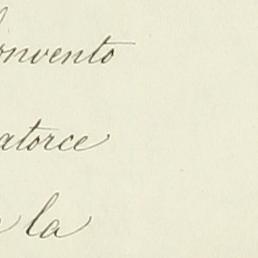 onvento
atorce
la